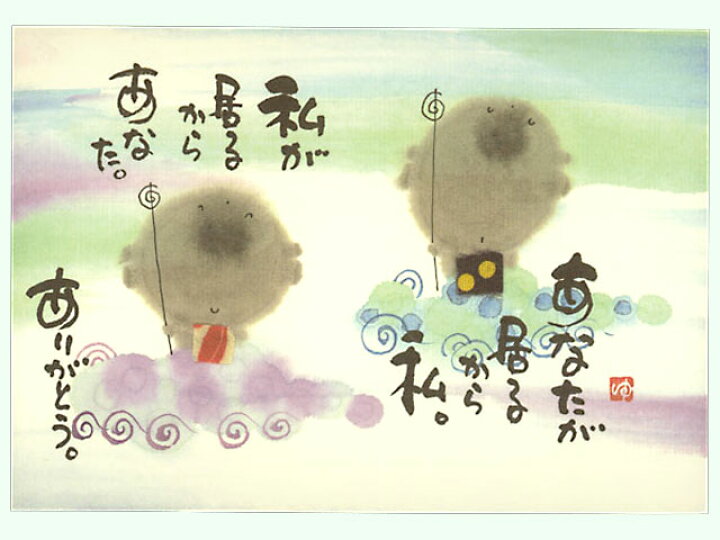 あなたが
居る
から
私。
私が
居る
から
あな
た。
ありがとう。
ゆ